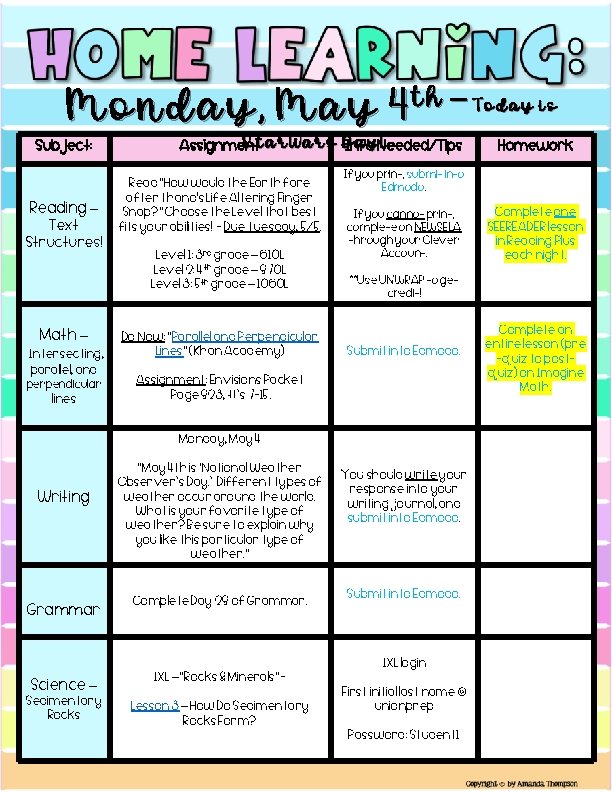 HOME LEARNING:
Monday, May 4th – Today is
Star Wars Day!
Subject:
Assignment
Info Needed/Tips
Homework
Reading –
Text
Structures!
Read "How would the Earth fare
after Thanos's Life Altering Finger
Snap?" Choose the Level that best
fits your abilities! – Due Tuesday, 5/5.
Level 1: 3rd grade – 610L
Level 2: 4th grade – 970L
Level 3: 5th grade – 1060L
If you print, submit into
Edmodo.
If you cannot print,
complete on NEWSELA
through your Clever
Account.
**Use UNWRAP to get
credit!
Complete one
SEEREADER lesson
in Reading Plus
each night.
Math –
Intersecting,
parallel, and
perpendicular
lines
Do Now: "Parallel and Perpendicular
Lines" (Khan Academy)
Assignment: Envisions Packet
Page 823, #'s 7-15.
Submit into Edmodo.
Complete an
entire lesson (pre
-quiz to post-
quiz) on Imagine
Math.
Writing
Monday, May 4
"May 4th is 'National Weather
Observer's Day.' Different types of
weather occur around the world.
What is your favorite type of
weather? Be sure to explain why
you like this particular type of
weather."
You should write your
response into your
writing journal, and
submit into Edmodo.
Grammar
Complete Day 28 of Grammar.
Submit into Edmodo.
Science –
Sedimentary
Rocks
IXL – "Rocks & Minerals" -
Lesson 3 – How Do Sedimentary
Rocks Form?
IXL login
First initial last name @
unionprep
Password: Student1
Copyright © by Amanda Thompson